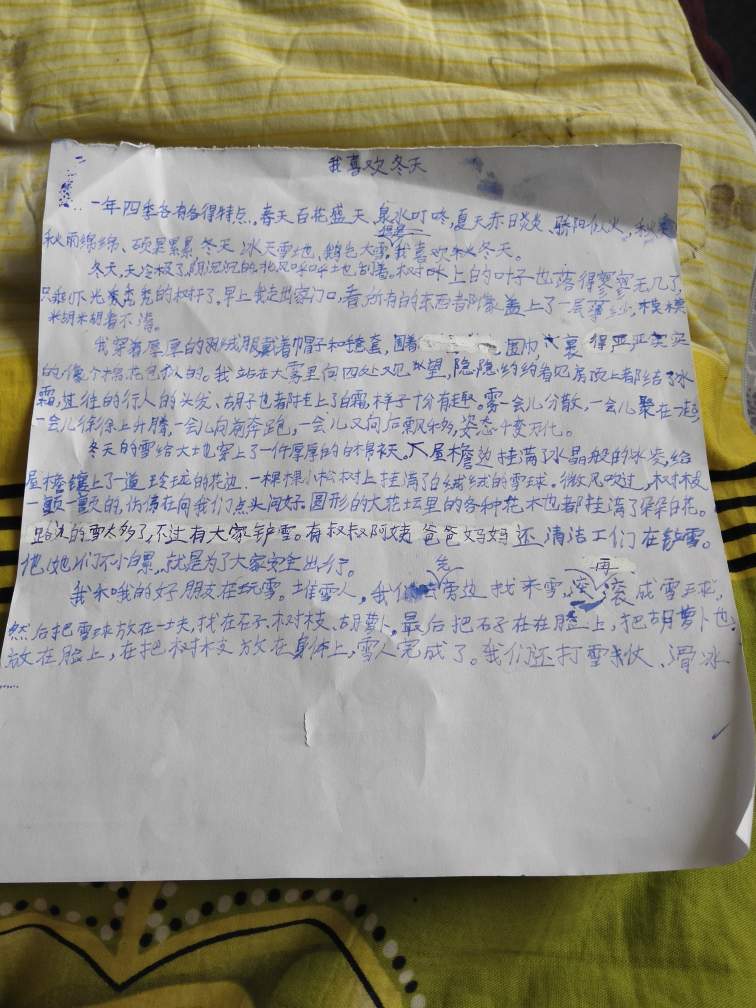 我喜欢冬天
一年四季各有各得特点,春天百花盛天、泉水叮咚,夏天赤日炎炎、骄阳似火,秋天
秋雨绵绵、硕果累累 冬天 冰天雪地、鹅毛大雪,我喜欢 冬天。
冬天,天冷极了,阴沉沉的北风呼呼地刮着。树木上的叶子也落得寥寥无几了,
只剩下光秃秃的树杆了。早上我走出家门口,看所有的东西都像盖上了一层薄纱,模模
糊糊看不清。
我穿着厚厚的羽绒服戴着帽子和手套,围着 围巾, 裹得严严实实
的,像个棉花包似的。我站在大雾里向四处 望,隐隐约约看见房顶上都结了冰
霜,过往的行人的头发、胡子也者附上了白霜,样子十分有趣。雾一会儿分散,一会儿聚在一起
一会儿徐徐上升腾,一会儿向前奔跑,一会儿又向后飘移,姿态千变万化。
冬天的雪给大地穿上了一件厚厚的白棉袄。屋檐边挂满了水晶般的冰凌,给
屋檐镶上了一道玲珑的花边。一棵棵小松树上挂满了白绒绒的雪球。微风吹过,树枝
一颤一颤的,仿佛在向我们点头问好。圆形的大花坛里的各种花木也都挂满了朵朵白花。
路边的雪太多了,不过有大家铲雪。有叔叔阿姨 爸爸妈妈 还 清洁工们在铲雪。
他(她)们不小白累,就是为了大家安全出行。
我和我的好朋友在玩雪。堆雪人,我们先 旁边 找来雪,再滚成雪球,
然后把雪球放在一块,找在石子、树枝、胡萝卜,最后把石子在在脸上,把胡萝卜也
放在脸上,在把树枝放在身体上,雪人完成了。我们还打雪仗、滑冰